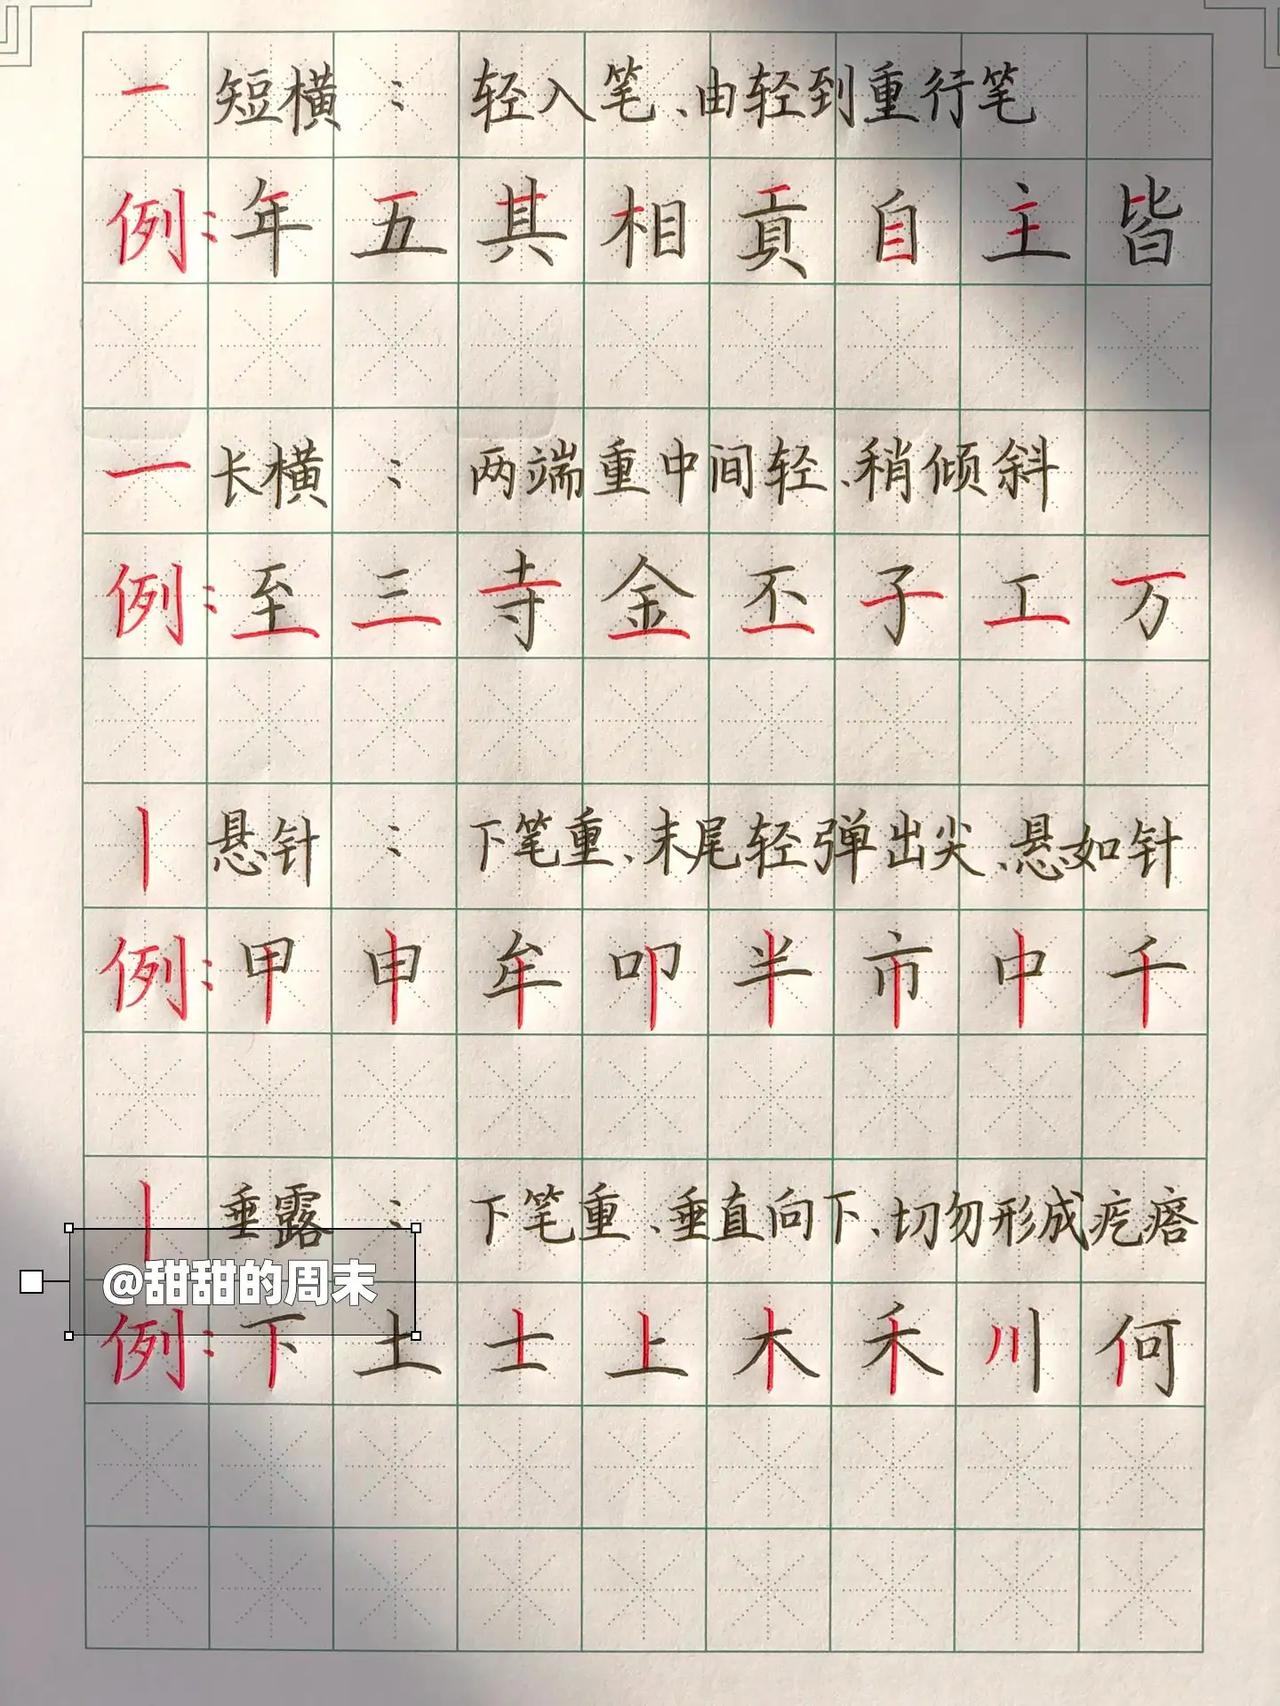 一 短横：轻入笔、由轻到重行笔
例：年五其相贡自主皆
一 长横：两端重中间轻、稍倾斜
例：至三寺金丕子工万
丨 悬针：下笔重、末尾轻弹出尖、悬如针
例：甲申牟叩半市中千
丨 垂露：下笔重、垂直向下、切勿形成疙瘩
@甜甜的周末
例：下土士上木禾川何